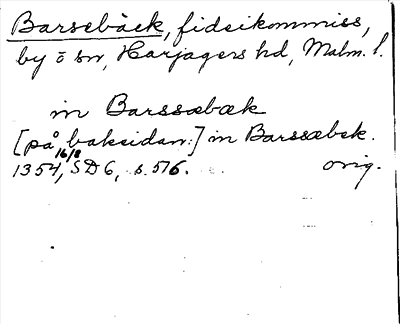 Barsebäck, fideikommiss,
by o sn, Harjagers hd, Malm. l.
in Barssæbæk
[på baksidan:] in Barssæbek.
1354 16/8, SD 6, s. 516. orig.